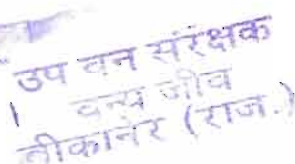 उप वन संरक्षक
वन्य जीव
बीकानेर (राज.)